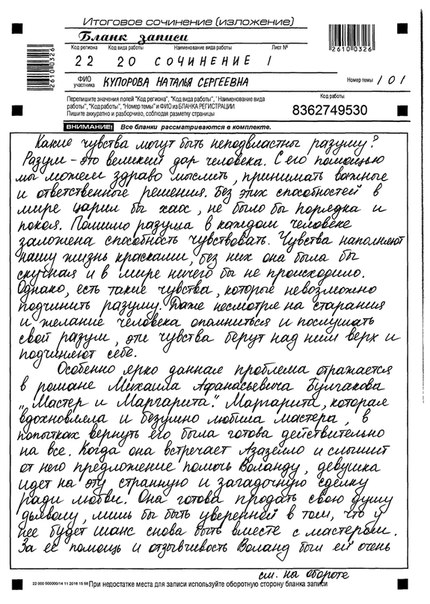 Итоговое сочинение (изложение)
Бланк записи
2610 0326
2610 0326
Код региона Код вида работы Наименование вида работы Лист №
22 20 СОЧИНЕНИЕ 1
ФИО участника КУПОРОВА НАТАЛЬЯ СЕРГЕЕВНА Номер темы 101
Перепишите значения полей "Код региона", "Код вида работы", "Наименование вида
работы", "Код работы", "Номер темы" и ФИО из БЛАНКА РЕГИСТРАЦИИ.
Пишите аккуратно и разборчиво, соблюдая разметку страницы
Код работы
8362749530
ВНИМАНИЕ! Все бланки рассматриваются в комплекте.
Какие чувства могут быть неподвластны разуму?
Разум – это великий дар человека. С его помощью
мы можем здраво мыслить, принимать важные
и ответственные решения. Без этих способностей в
мире царил бы хаос, не было бы порядка и
покоя. Помимо разума в каждом человеке
заложена способность чувствовать. Чувства наполняют
нашу жизнь красками, без них она была бы
скучная и в мире ничего бы не происходило.
Однако, есть такие чувства, которые невозможно
подчинить разуму. Даже несмотря на старания
и желание человека опомниться и послушать
свой разум, эти чувства берут над ним верх и
подчиняют себе.
Особенно ярко данная проблема отражается
в романе Михаила Афанасьевича Булгакова
"Мастер и Маргарита". Маргарита, которая
вдохновляла и безумно любила мастера, в
попытках вернуть его была готова действительно
на все. Когда она встречает Азазелло и слышит
от него предложение помочь Воланду, девушка
идет на эту странную и загадочную сделку
ради любви. Она готова продать свою душу
дьяволу, лишь бы быть уверенной в том, что у
нее будет шанс снова быть вместе с мастером.
За ее помощь и отзывчивость Воланд был ей очень
см. на обороте
При недостатке места для записи используйте оборотную сторону бланка записи